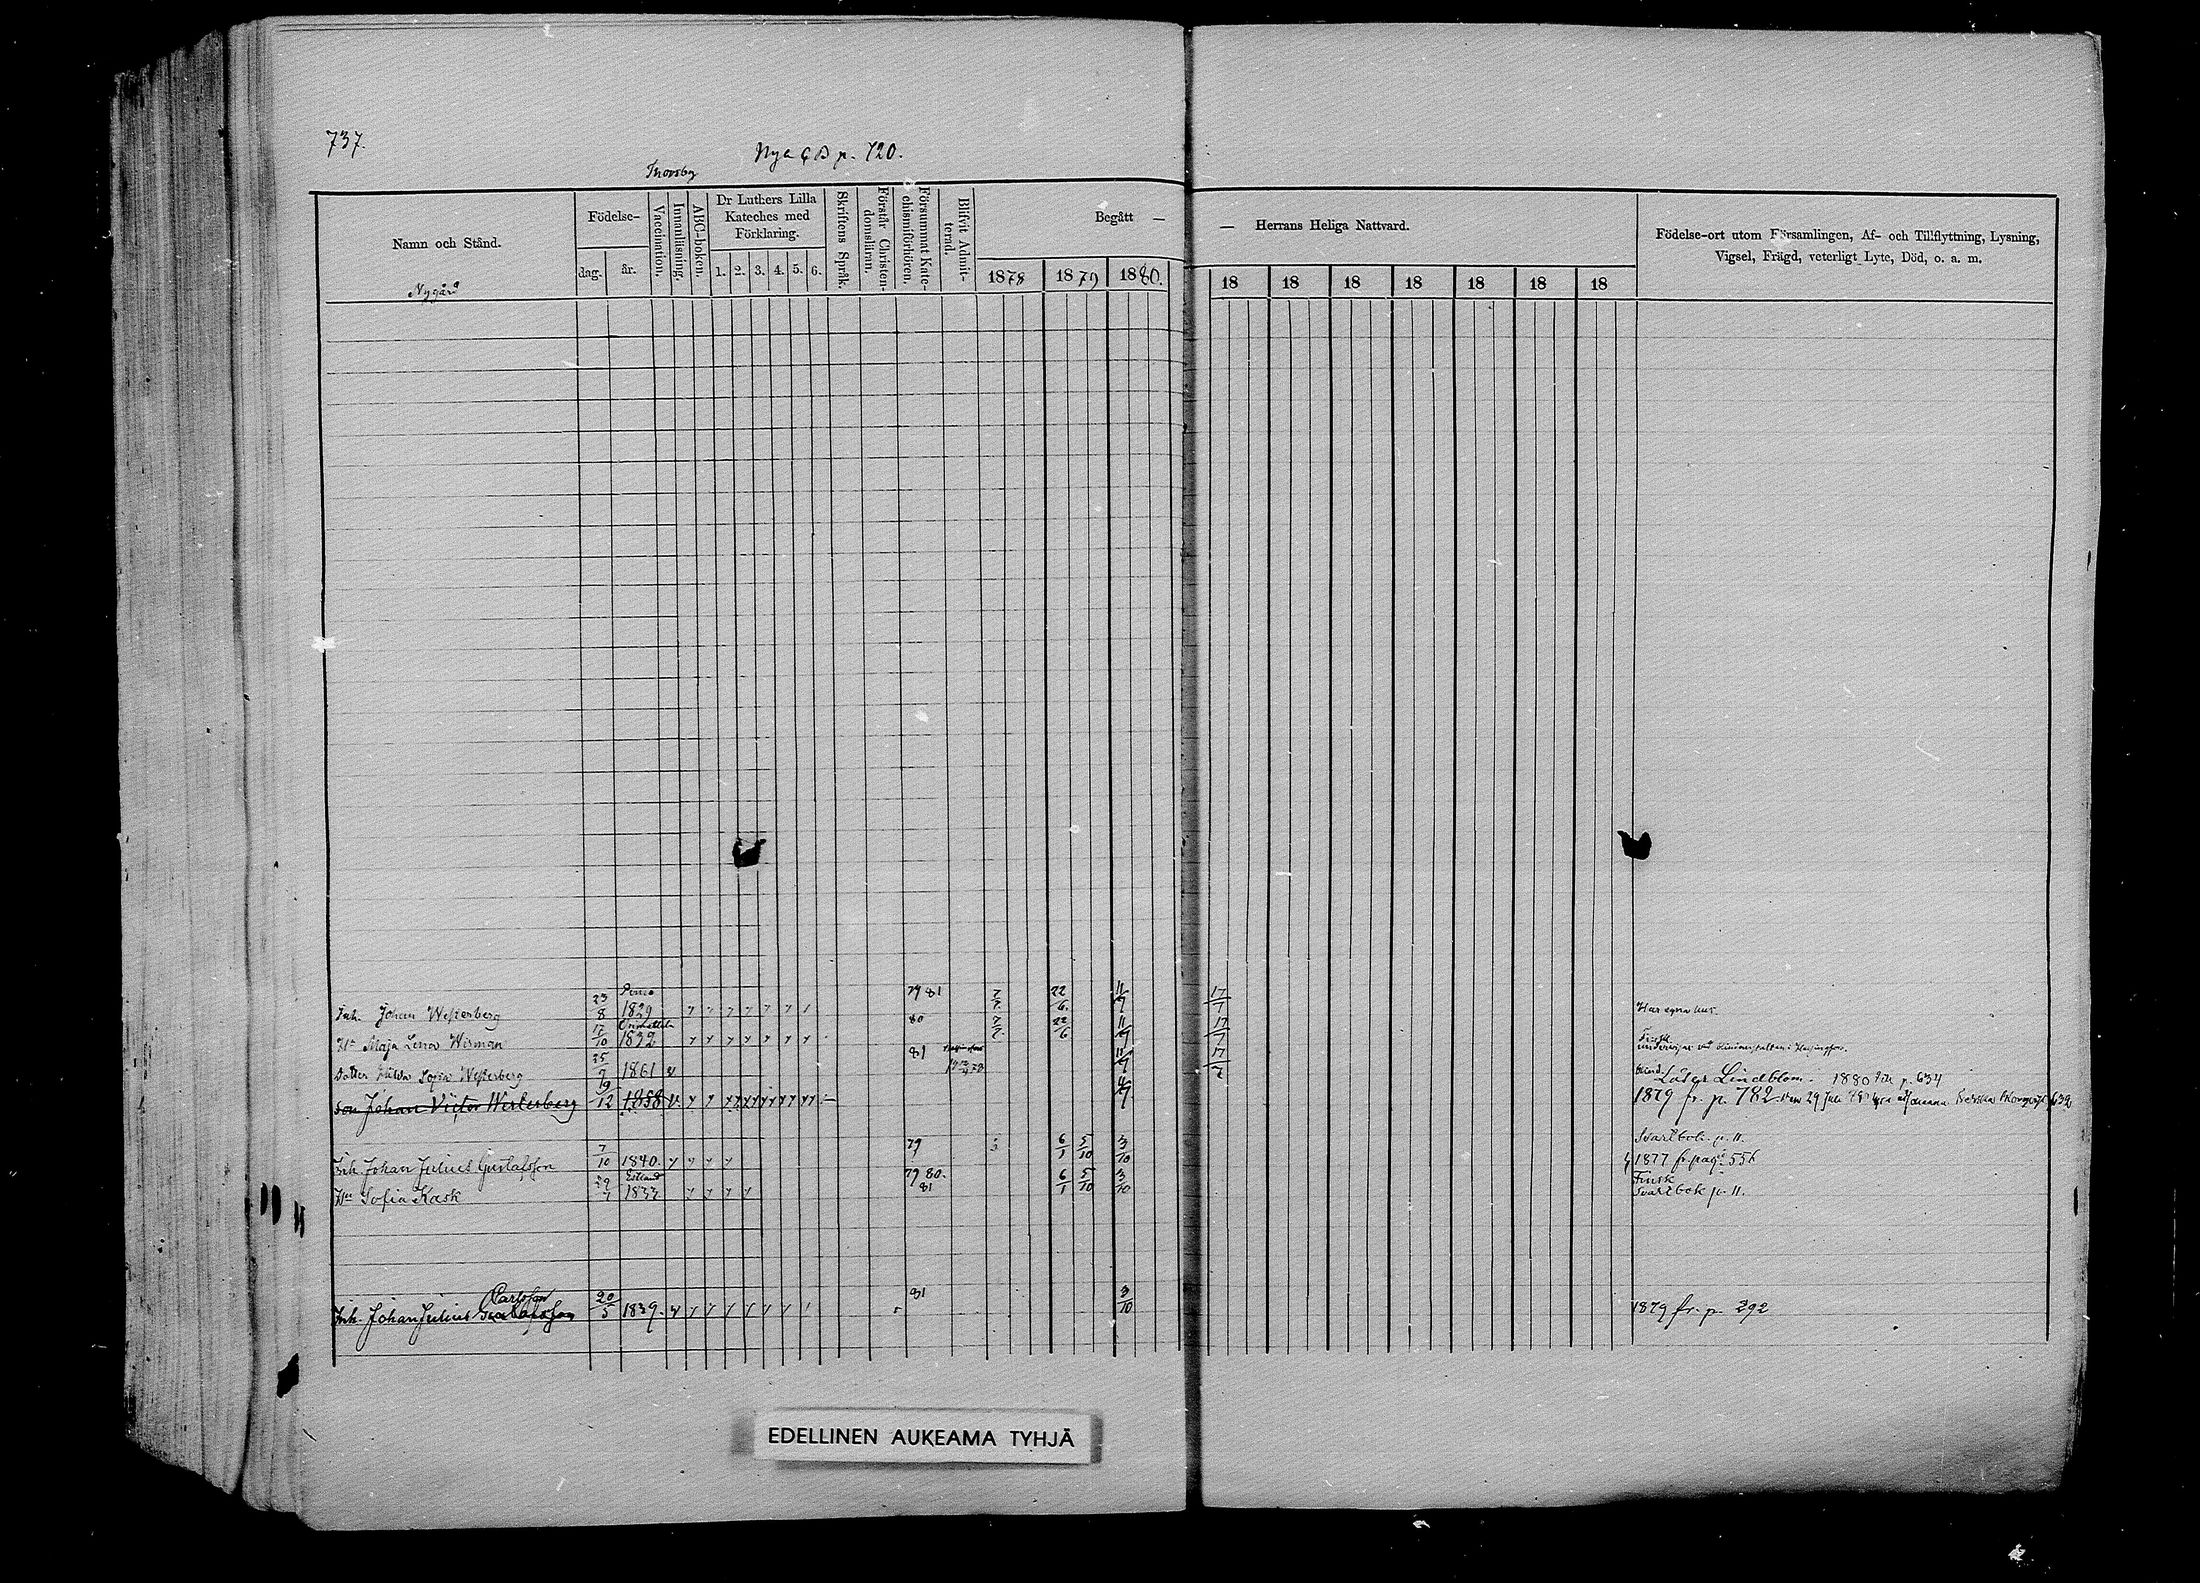 737.
Nya C B p. 720.
Thorsby
Namn och Stånd.
Nygård
Födelse-
dag. år.
Vaccination.
Innanläsning.
ABC-boken.
Dr Luthers Lilla
Kateches med
Förklaring.
1. 2. 3. 4. 5. 6.
Skriftens Språk.
Förstår Christen-
domsläran.
Försummat Kate-
chismiförhören.
Blifvit Admit-
terad.
Begått —
1878 1879 1880.
— Herrans Heliga Nattvard.
18 18 18 18 18 18 18
Födelse-ort utom Församlingen, Af- och Tillflyttning, Lysning,
Vigsel, Frägd, veterligt Lyte, Död, o. a. m.
Inh. Johan Westerberg 23/8 1829 79 81 22/6. 11/9 17/7 Har egna hus.
Hu Maja Lena Wirman 17/10 1832 80 22/6 11/9 17/7 Finsk
Dotter Hulda Sofia Westerberg 25/7 1861 81 11/9 17/7
Lindblom. 1880 till p. 634
Son Johan Victor Westerberg 19/12 1858 4/9 1879 fr. p. 782
Svartbok. p. 11.
Inh. Johan Julius Gustafsson 7/10 1840. 79 6/1 5/10 3/10 1877 fr. pag. 556
Estland
Finsk
Hu Sofia Kask 29/7 1833 79 80. 81 6/1 5/10 3/10 Svartbok p. 11.
Carlsson
Inh. Johan Julius Gustafsson 20/5 1839. 81 3/10 1879 fr. p. 292
EDELLINEN AUKEAMA TYHJÄ